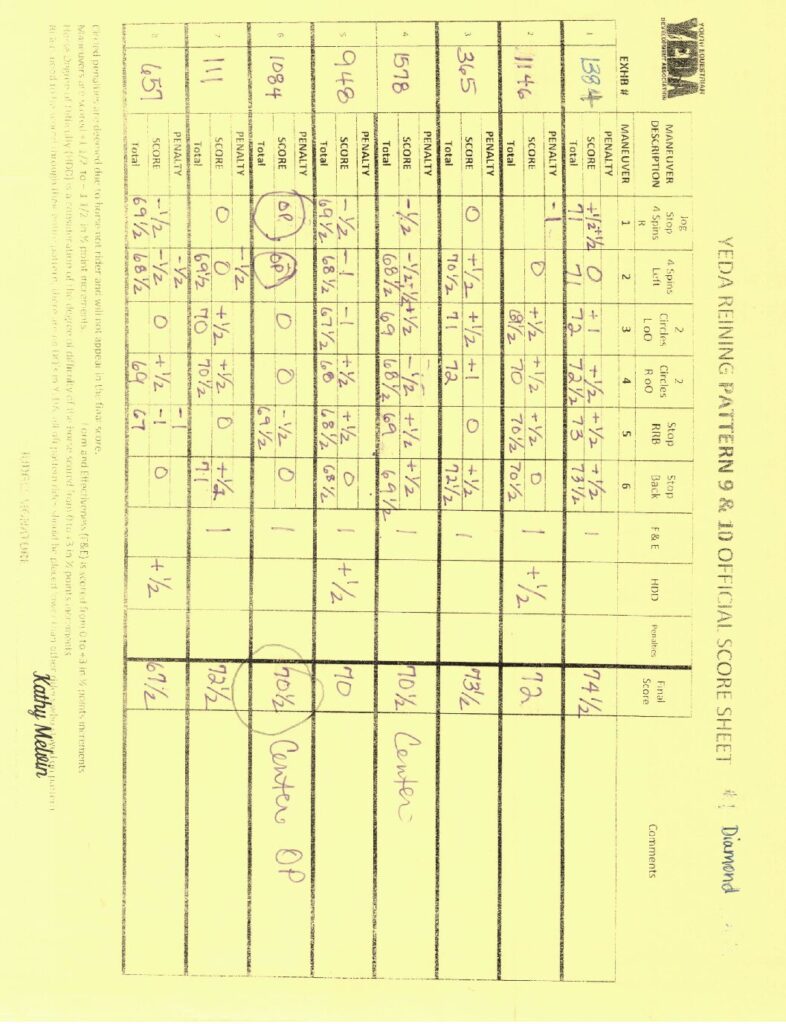 YEDA REINING PATTERN 9 & 10 OFFICIAL SCORE SHEET #1 Diamond
YOUTH EQUESTRIAN
DEVELOPMENT ASSOCIATION
YEDA
MANEUVER DESCRIPTION Jog Stop 4 Spins R 4 Spins Left 2 Circles L oO 2 Circles R oO Stop RRB Stop Back F&E HDD Penalties Final Score Comments
EXHB # MANEUVER 1 2 3 4 5 6
PENALTY
1 1384 SCORE +1/2+1/2 0 +1 +1/2 +1/2 +1/2 1 74 1/2
Total 71 71 72 72 1/2 73 73 1/2
PENALTY -1
2 1146 SCORE 0 +1/2 +1/2 +1/2 0 1 +1/2 72
Total 70 70 1/2 70 1/2
PENALTY
3 365 SCORE 0 +1/2 +1/2 +1 0 +1/2 1 73 1/2
Total 70 1/2 71 72 72 1/2
PENALTY
4 1578 SCORE -1/2 -1/2-1/2 +1/2 -1/2 +1/2 +1/2 1 70 1/2 Center
Total 68 1/2 69 68 1/2 69 69 1/2
PENALTY
5 948 SCORE -1/2 -1 -1 +1/2 +1/2 0 1 +1/2 70
Total 69 1/2 68 1/2 67 1/2 68 68 1/2 68 1/2
PENALTY
6 1084 SCORE OP OP 0 0 -1/2 0 1 70 1/2 Center OP
Total 69 1/2
PENALTY -1/2
7 111 SCORE 0 0 +1/2 +1/2 0 +1/2 1 72 1/2
Total 69 1/2 70 70 1/2 71
PENALTY -1/2 -1
8 657 SCORE -1/2 -1/2 0 +1/2 -1 0 +1/2 67 1/2
Total 69 1/2 68 1/2 69 67
Circled penalties are deemed due to horse not rider and will not appear in the final score.
Maneuvers are scored +1 1/2 to -1 1/2 in ½ point increments. Form and Effectiveness (F&E) is scored from 0 to +3 in ½ points increments
Horse Degree of Difficulty (HDD) is a consideration of the degree of difficulty of the horse scored from 0 to +3 in ½ points increments
Kathy Melvin